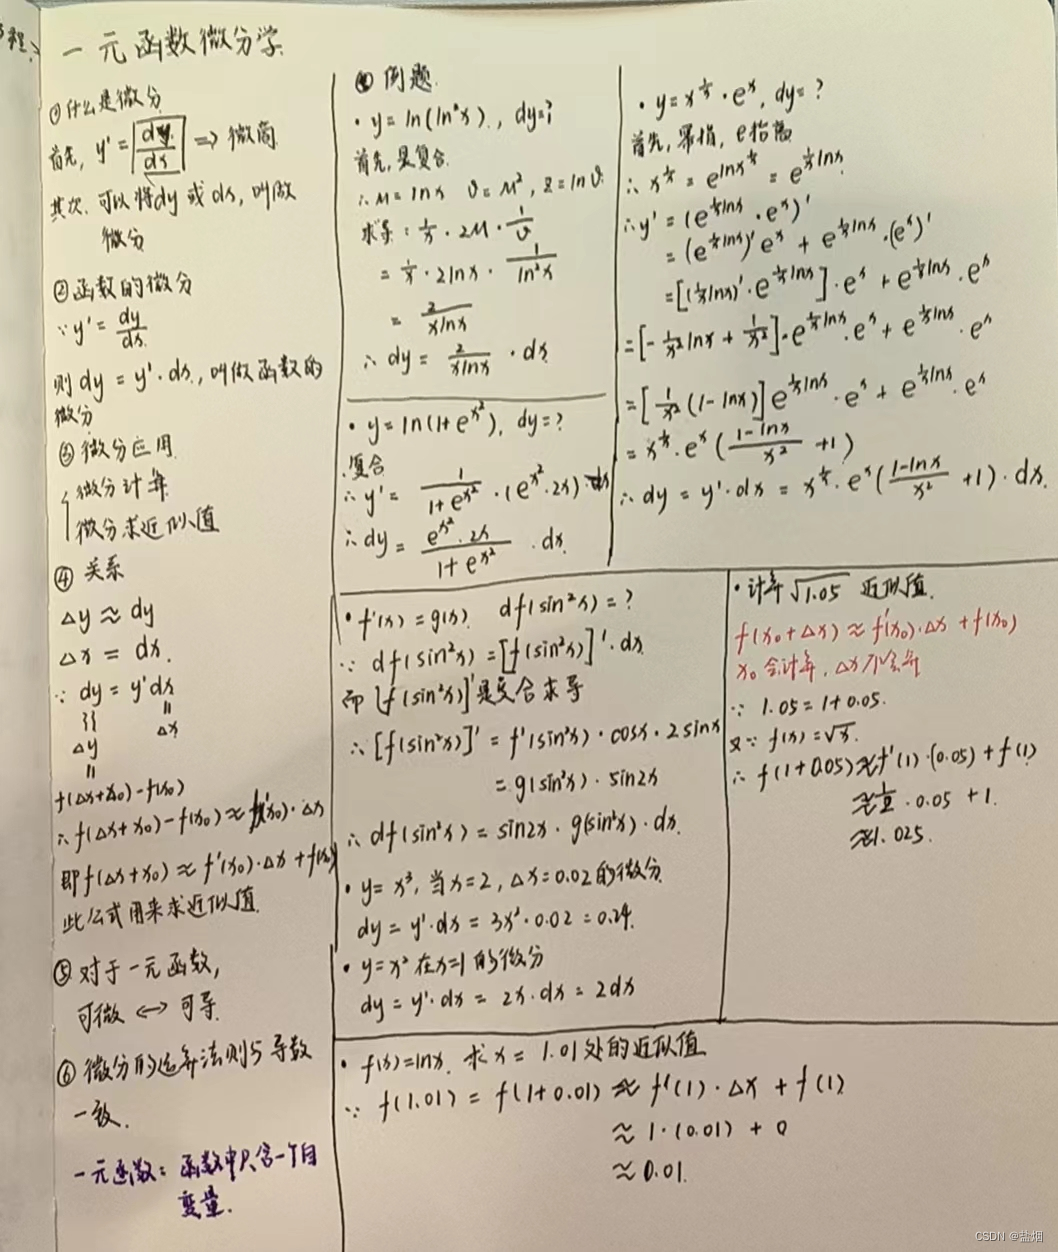 一元函数微分学
①什么是微分
首先, y' = dy/dx ⇒ 微商
其次. 可以将dy 或 dx, 叫做
微分
②函数的微分
∵ y' = dy/dx
则 dy = y'·dx, 叫做函数的
微分
③微分应用
微分计算
微分求近似值
④ 关系
Δy ≈ dy
Δx = dx.
∵ dy = y'dx
Δy Δx
f(Δx+x₀) - f(x₀)
∴ f(Δx+x₀) - f(x₀) ≈ f'(x₀)·Δx
即 f(Δx+x₀) ≈ f'(x₀)·Δx + f(x₀)
此公式用来求近似值.
⑤ 对于一元函数,
可微 ↔ 可导.
⑥ 微分的运算法则与导数
一致.
一元函数: 函数中只含一个自
变量.
例题
· y = ln(ln²x), dy=?
首先, 是复合.
∴ u = lnx v = u², z = lnv.
求导: 1/x · 2u · 1/v
= 1/x · 2lnx · 1/ln²x
= 2/(xlnx)
∴ dy = 2/(xlnx) · dx
· y = ln(1+e^(x²)), dy=?
复合
∴ y' = 1/(1+e^(x²)) · (e^(x²)·2x)
∴ dy = (e^(x²)·2x)/(1+e^(x²)) · dx.
· y = x^(1/x)·e^x, dy = ?
首先, 幂指, e抬起
∴ x^(1/x) = e^(lnx^(1/x)) = e^(1/x lnx)
∴ y' = (e^(1/x lnx) · e^x)'
= (e^(1/x lnx))' e^x + e^(1/x lnx)·(e^x)'
= [(1/x lnx)'·e^(1/x lnx)]·e^x + e^(1/x lnx)·e^x
= [-1/x² lnx + 1/x²]·e^(1/x lnx)·e^x + e^(1/x lnx)·e^x
= [1/x² (1-lnx)] e^(1/x lnx)·e^x + e^(1/x lnx)·e^x
= x^(1/x)·e^x ((1-lnx)/x² + 1)
∴ dy = y'·dx = x^(1/x)·e^x ((1-lnx)/x² + 1)·dx.
· f'(x) = g(x). df(sin²x) = ?
∵ df(sin²x) = [f(sin²x)]'·dx.
而 [f(sin²x)]' 是复合求导
∴ [f(sin²x)]' = f'(sin²x)·cosx·2sinx
= g(sin²x)·sin2x
∴ df(sin²x) = sin2x·g(sin²x)·dx.
· y = x³, 当x=2, Δx=0.02的微分.
dy = y'·dx = 3x²·0.02 = 0.24.
· y=x² 在x=1 的微分
dy = y'·dx = 2x·dx = 2dx
· 计算√1.05 近似值.
f(x₀+Δx) ≈ f'(x₀)·Δx + f(x₀)
x₀ 会计算, Δx 不会算
∵ 1.05 = 1+0.05.
又∵ f(x) = √x.
∴ f(1+0.05) ≈ f'(1)·(0.05) + f(1)
≈ 1/2 · 0.05 + 1.
≈ 1.025.
· f(x)=lnx, 求 x = 1.01处的近似值
∵ f(1.01) = f(1+0.01) ≈ f'(1)·Δx + f(1)
≈ 1·(0.01) + 0
≈ 0.01.
CSDN @盐烟